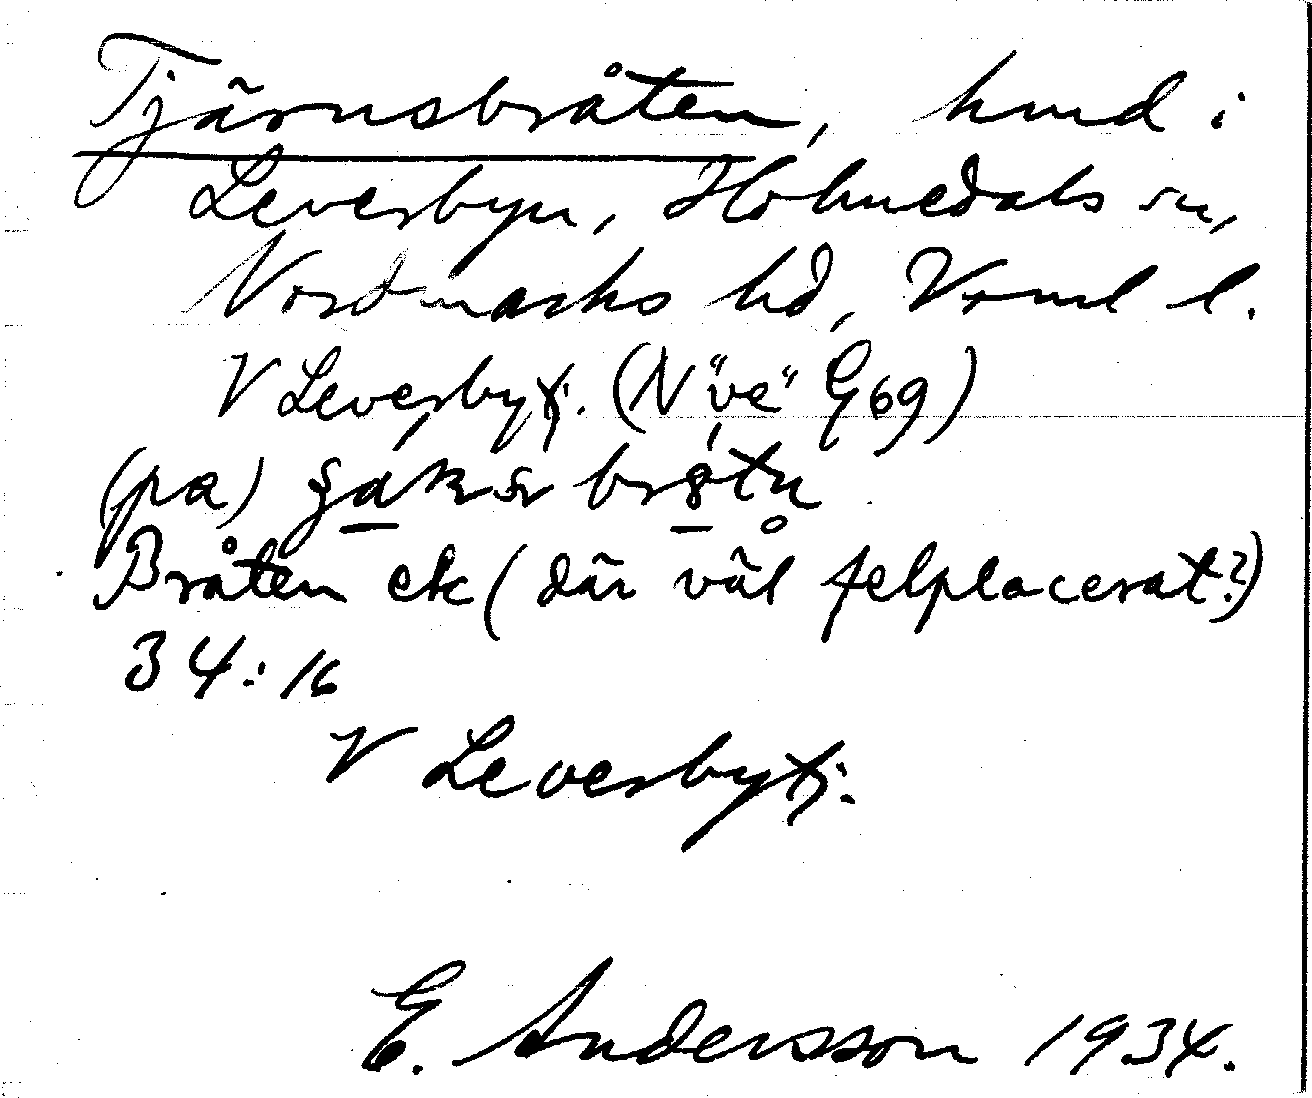 Tjärnsbråten, hmd i
Leverbyn, Holmedals sn,
Nordmarks hd, Vrml l.
V Leverbytj. (N "ve" G69)
(pa)
Bråten ek (där väl felplacerat?)
34:16
V Leverbytj.
E. Andersson 1934.